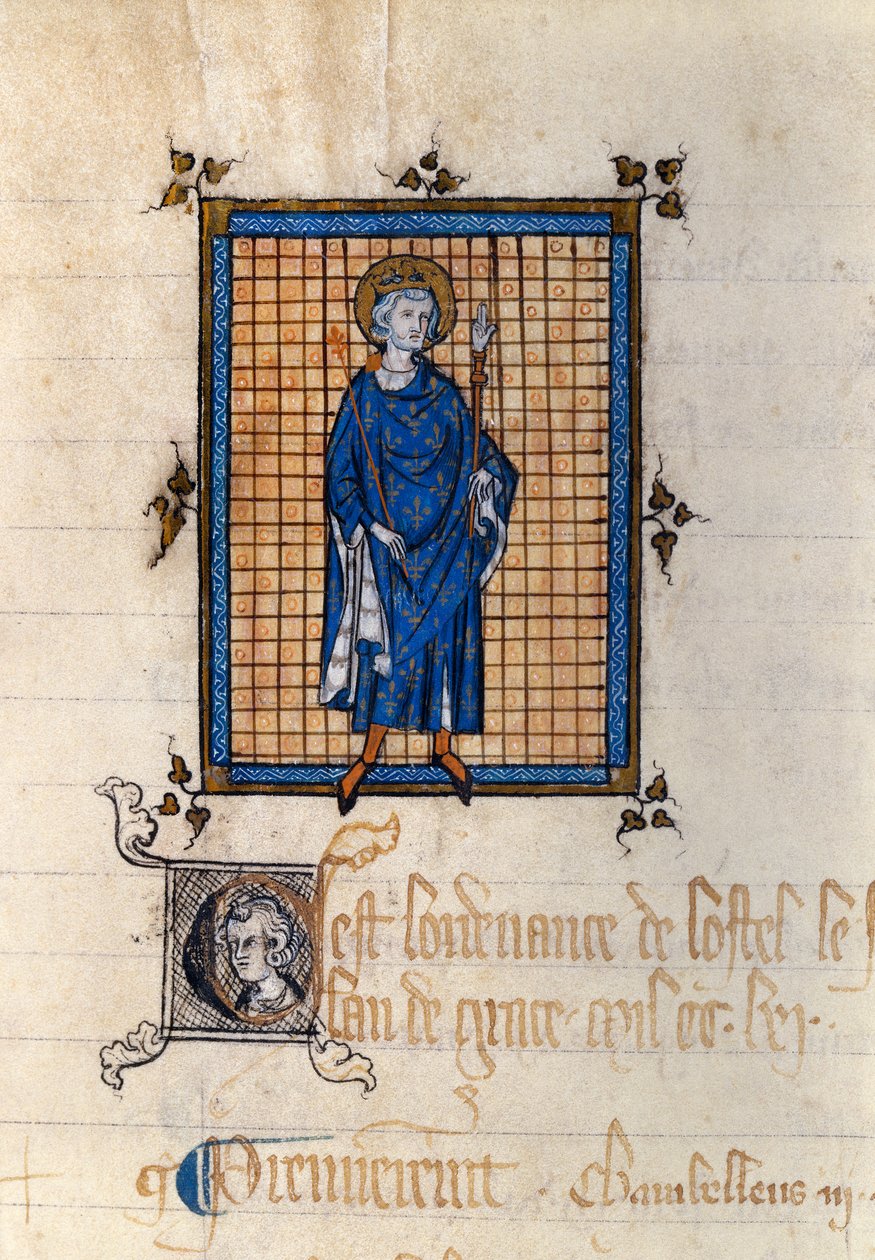 Cest lordenance de lostel le
lan de grace mil cc. lxj.
Premierement . Chambellens iij.